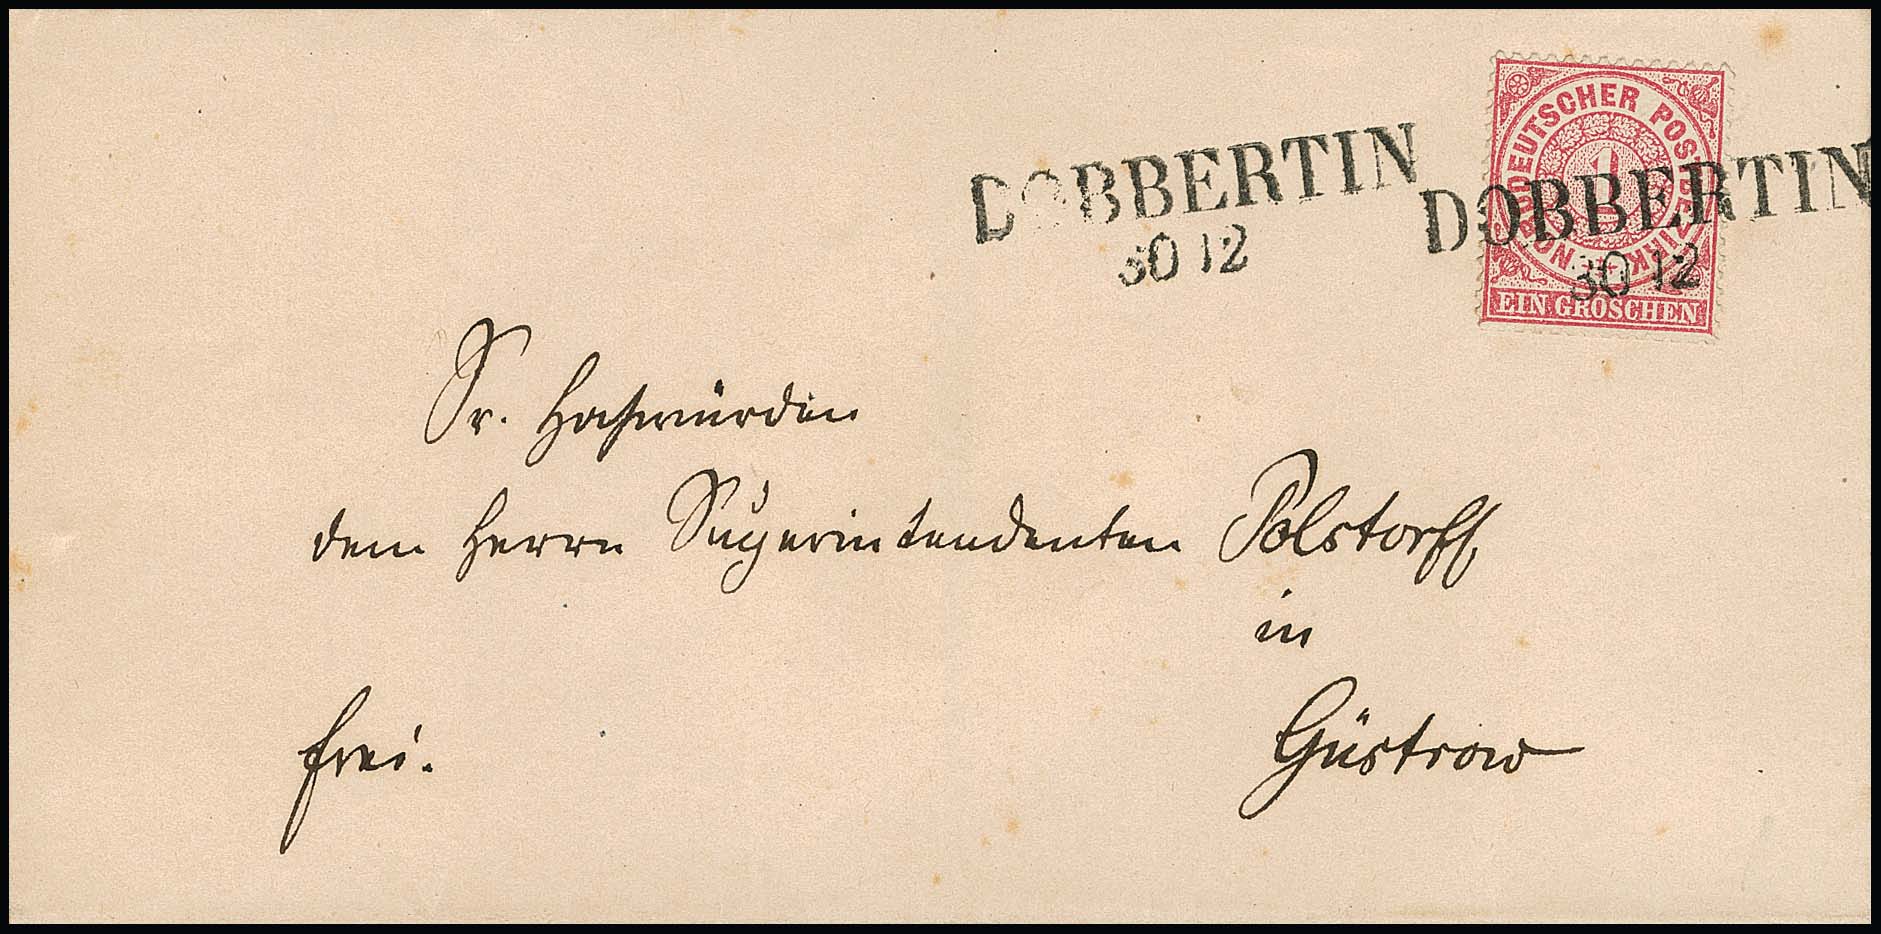 DOBBERTIN
30 12
DOBBERTIN
30 12
NORDDEUTSCHER POSTBEZIRK
1
EIN GROSCHEN
Sr. Hochwürden
dem Herrn Superintendenten Polstorff,
in
Güstrow
frei.